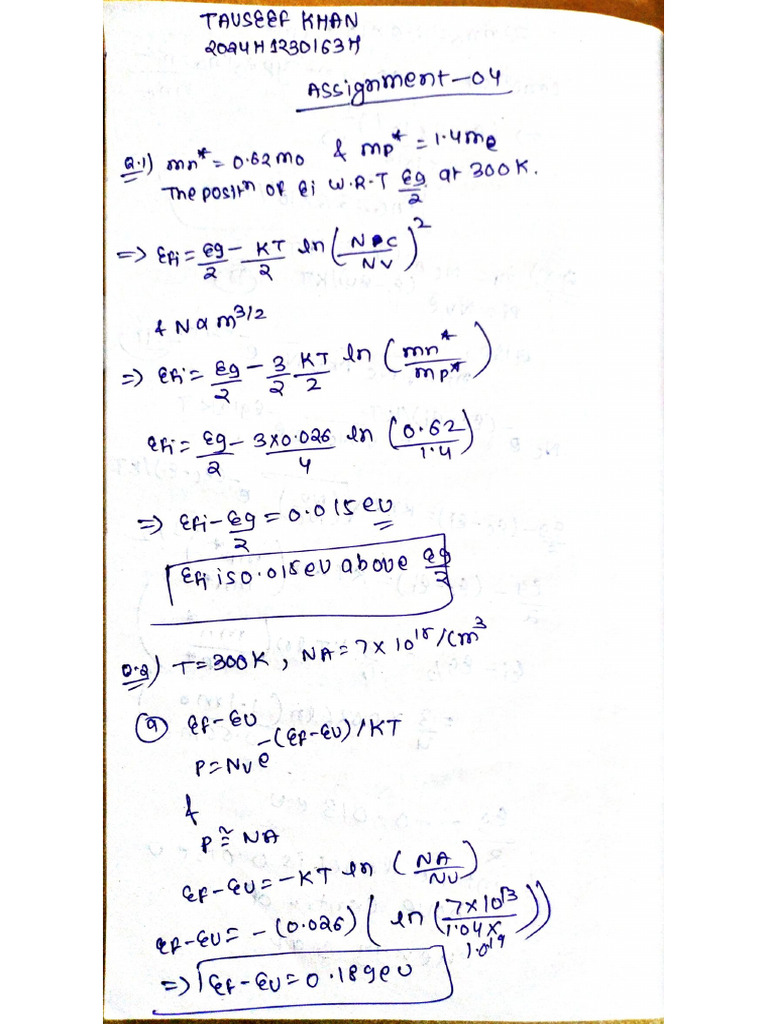 TAUSEEF KHAN
2024H1230163H
Assignment-04
Q.1) mn* = 0.62mo & mp* = 1.4me
The positn of Ei W.R.T Eg/2 at 300K.
=> Efi = Eg/2 - KT/2 ln (Nc/Nv)^2
& N α m^3/2
=> Efi = Eg/2 - 3/2 KT/2 ln (mn*/mp*)
Efi = Eg/2 - 3x0.026/4 ln (0.62/1.4)
=> Efi - Eg/2 = 0.015 eV
Efi is 0.015 eV above Eg/2
Q.2) T = 300K, NA = 7 x 10^15/cm^3
(a) Ef - EV
P = Nv e^-(Ef-EV)/KT
&
P ≅ NA
Ef - EV = -KT ln (NA/NV)
Ef - EV = -(0.026) (ln (7x10^15/1.04x10^19))
=> Ef - EV = 0.189 eV